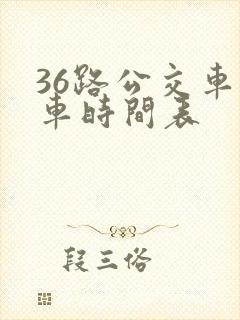 36路公交車
車時間表
段三俗